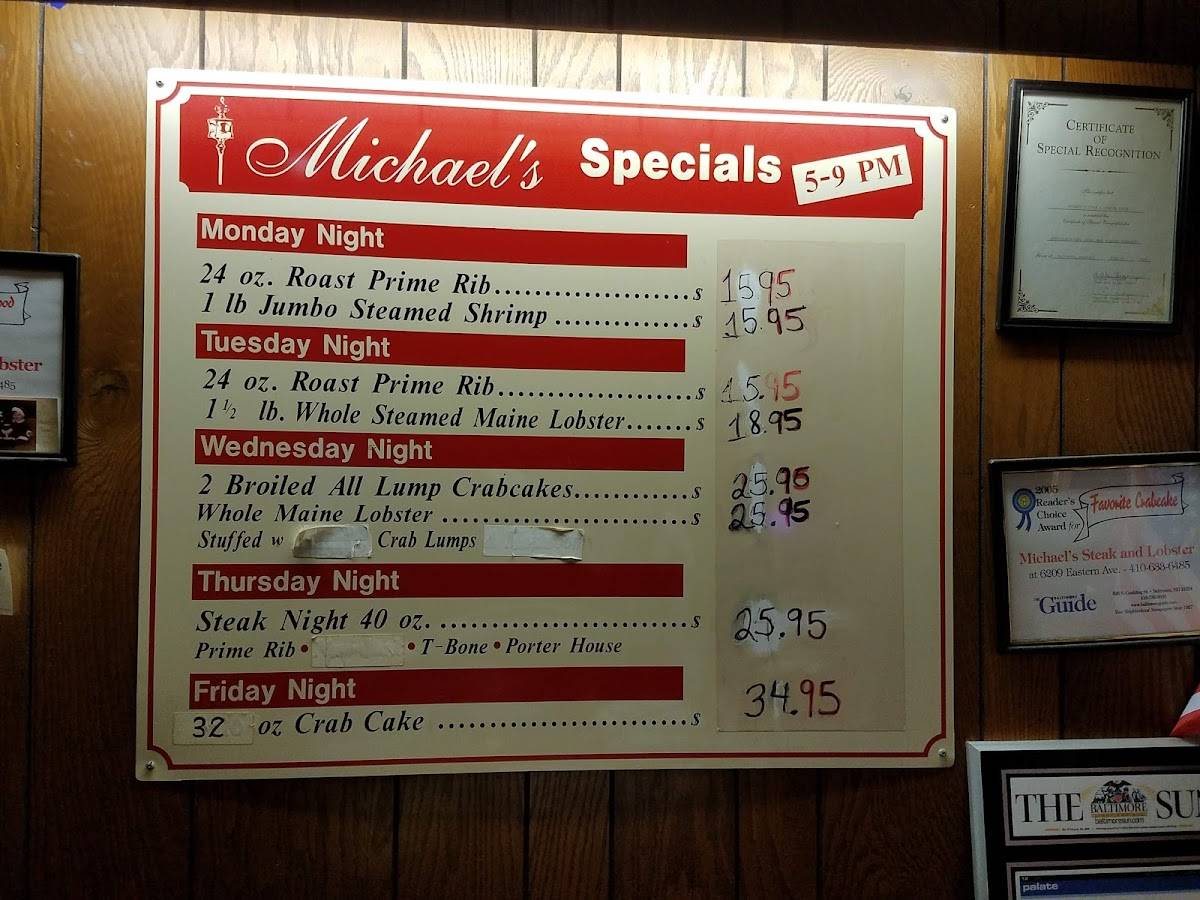 Michael's Specials 5-9 PM
Monday Night
24 oz. Roast Prime Rib....................$ 15.95
1 lb Jumbo Steamed Shrimp ..............$ 15.95
Tuesday Night
24 oz. Roast Prime Rib....................$ 15.95
1 1/2 lb. Whole Steamed Maine Lobster.......$ 18.95
Wednesday Night
2 Broiled All Lump Crabcakes............$ 25.95
Whole Maine Lobster .........................$ 25.95
Stuffed w Crab Lumps
Thursday Night
Steak Night 40 oz. ..........................$ 25.95
Prime Rib • • T-Bone • Porter House
Friday Night
32 oz Crab Cake ..........................$ 34.95
CERTIFICATE
OF
SPECIAL RECOGNITION
bster
485
2005
Reader's
Choice
Award for
Favorite Crabcake
Michael's Steak and Lobster
at 6209 Eastern Ave. - 410-633-6485
Guide
THE BALTIMORE SU
baltimoresun.com
palate